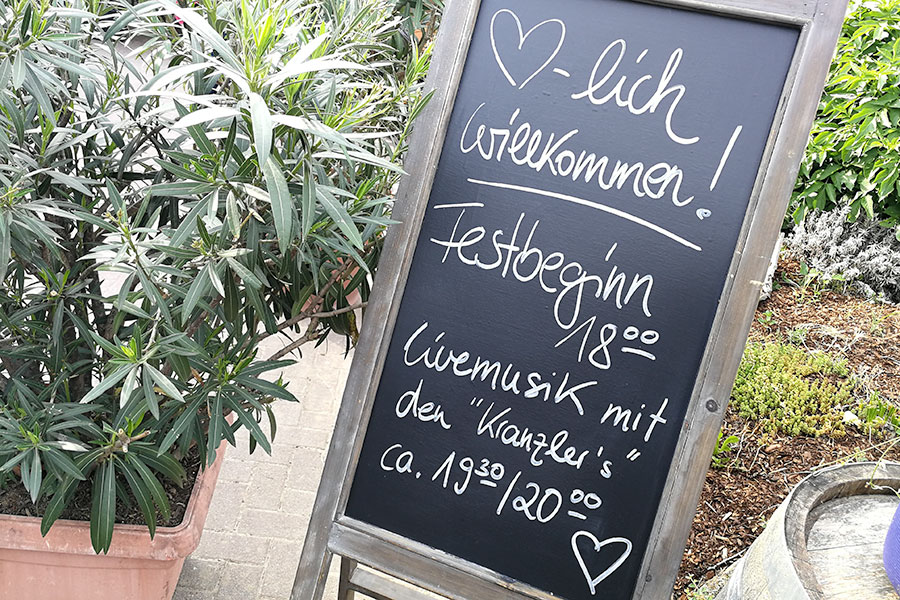 ♡-lich
Willkommen!
Festbeginn
18⁰⁰
Livemusik mit
den "Kranzler's"
ca. 19³⁰/20⁰⁰
♡